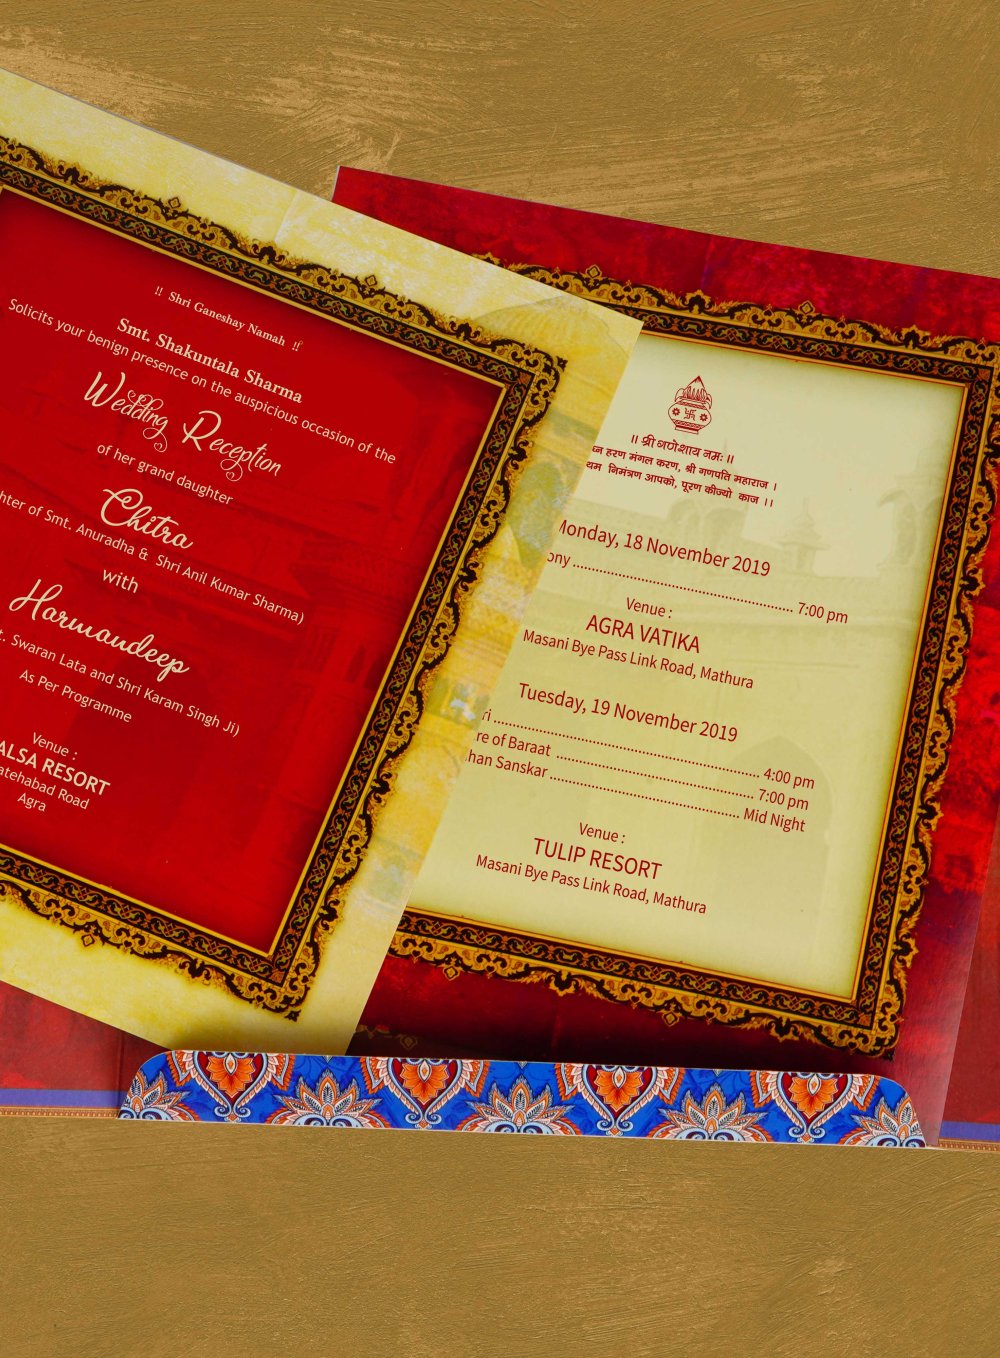 !! Shri Ganeshay Namah !!
Smt. Shakuntala Sharma
Solicits your benign presence on the auspicious occasion of the
Wedding Reception
of her grand daughter
Chitra
of Smt. Anuradha & Shri Anil Kumar Sharma)
with
Harmandeep
Swaran Lata and Shri Karam Singh Ji)
As Per Programme
Venue :
RESORT
Road
Agra
॥ श्री गणेशाय नमः ॥
हरण मंगल करण, श्री गणपति महाराज ।
निमंत्रण आपको, पूरण कीज्यो काज ।।
Monday, 18 November 2019
7:00 pm
Venue :
AGRA VATIKA
Masani Bye Pass Link Road, Mathura
Tuesday, 19 November 2019
4:00 pm
of Baraat 7:00 pm
Sanskar Mid Night
Venue :
TULIP RESORT
Masani Bye Pass Link Road, Mathura